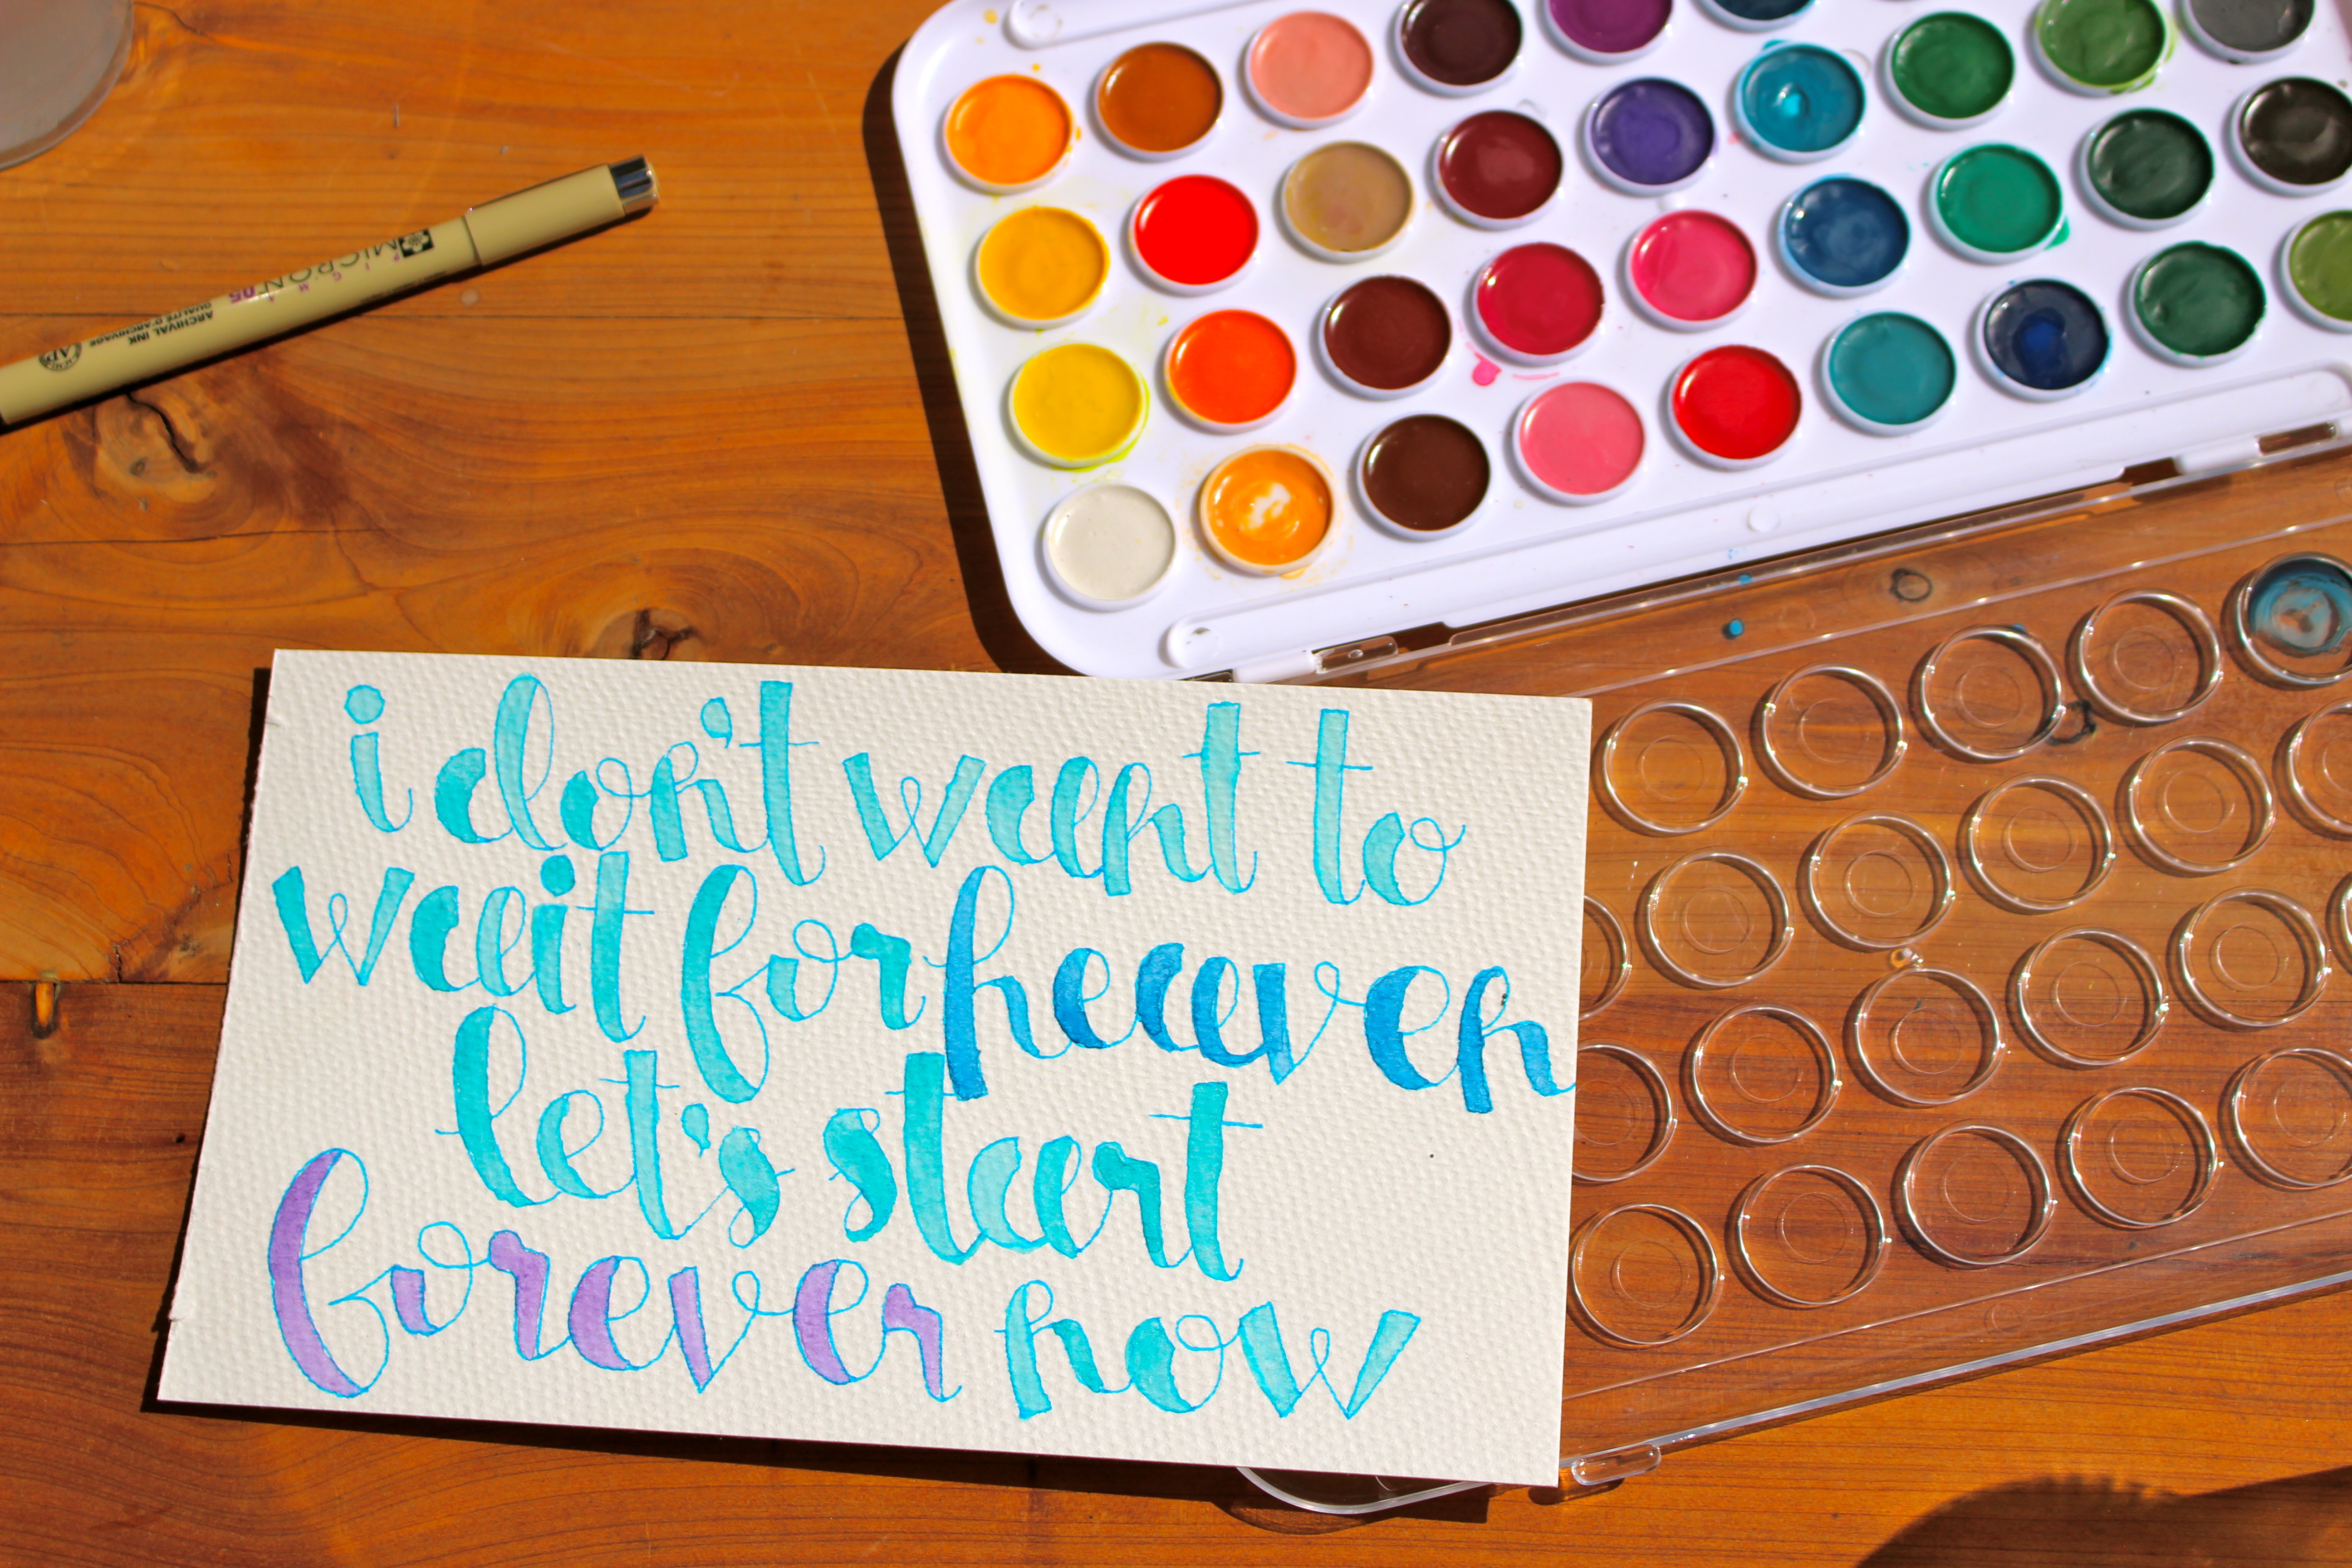 PIGMA
MICRON 05
ARCHIVAL INK
QUALITÉ D'ARCHIVAGE
i don't want to
wait for heaven
let's start
forever now